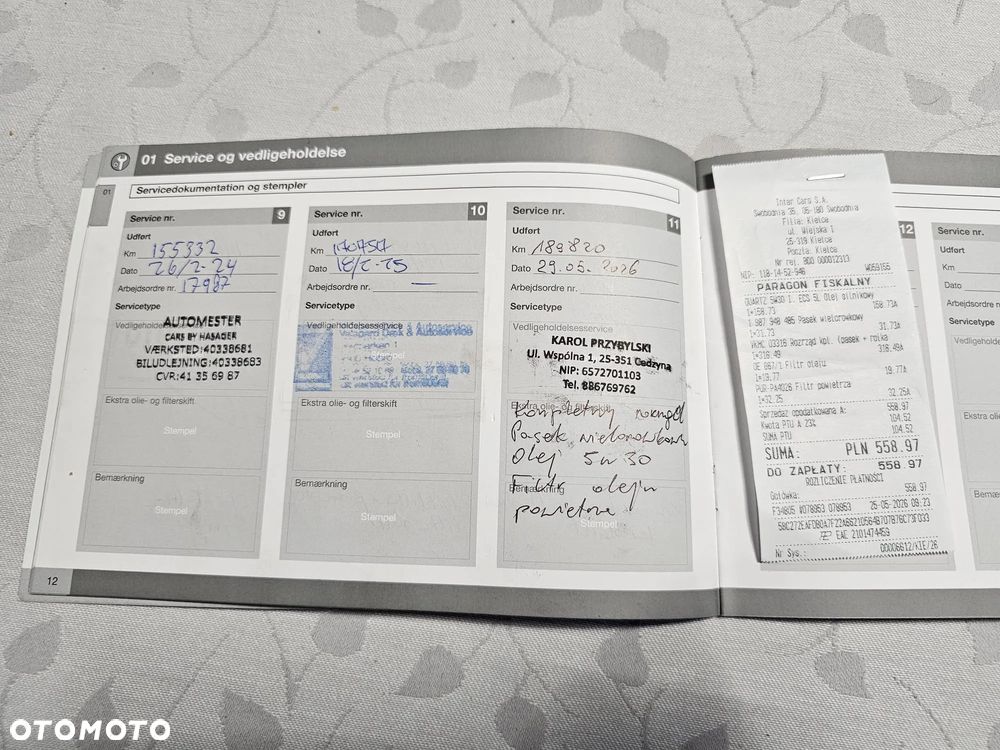 01 Service og vedligeholdelse
01
Servicedokumentation og stempler
Service nr. 9
Udført
Km 155332
Dato 26/2-24
Arbejdsordre nr. 17987
Servicetype
Vedligeholdelsesservice
AUTOMESTER
CARS BY HASAGER
VÆRKSTED:40338681
BILUDLEJNING:40338683
CVR:41 35 69 87
Ekstra olie- og filterskift
Stempel
Bemærkning
Stempel
Service nr. 10
Udført
Km
Dato 18/2-25
Arbejdsordre nr. —
Servicetype
Vedligeholdelsesservice
Dæk & Autoservice
Ekstra olie- og filterskift
Stempel
Bemærkning
Stempel
Service nr. 11
Udført
Km 189820
Dato 29.05.2026
Arbejdsordre nr.
Servicetype
Vedligeholdelsesservice
KAROL PRZYBYLSKI
Ul. Wspólna 1, 25-351 Cedzyna
NIP: 6572701103
Tel. 886769762
Ekstra olie- og filterskift
Kompletny rozrząd
Pasek wielorowkowy
Olej 5w30
Bemærkning
Filtr oleju
powietrza
Stempel
12
Inter Cars S.A.
Swobodnia 35, 05-180 Swobodnia
Filia: Kielce
ul. Wiejska 1
25-319 Kielce
Poczta: Kielce
Nr rej. BDO 000012313
NIP: 118-14-52-946 W059155
PARAGON FISKALNY
QUARTZ 5W30 I. ECS 5L Olej silnikowy
1×158.73 158.73A
1 987 948 485 Pasek wielorowkowy
1×31.73 31.73A
VKMC 03316 Rozrząd kpl. (pasek + rolka
1×316.49 316.49A
OE 667/1 Filtr oleju
1×19.77 19.77A
PUR-PA4026 Filtr powietrza
1×32.25 32.25A
Sprzedaż opodatkowana A: 558.97
Kwota PTU A 23% 104.52
SUMA PTU 104.52
SUMA: PLN 558.97
DO ZAPŁATY: 558.97
ROZLICZENIE PŁATNOŚCI
Gotówka: 558.97
F34805 #078953 078953 25-05-2026 09:23
EAE 2101474459
Nr Sys.: 00006612/KIE/26
12
Service nr.
Udført
Km
Dato
Arbejdsordre nr.
Servicetype
Vedligeholdelsesservice
Ekstra olie-
Bemærkning
OTOMOTO